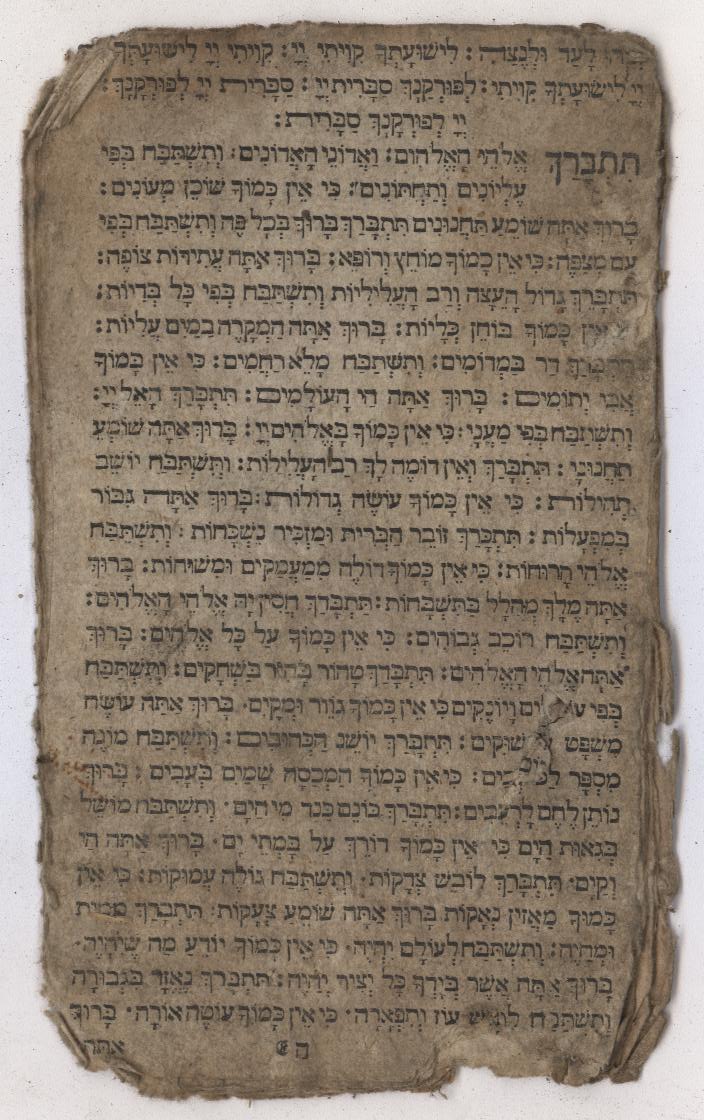 לָעַד וּלְנֶצַח: לִישׁוּעָתְךָ קִוִּיתִי יְיָ: קִוִּיתִי יְיָ לִישׁוּעָתְךָ
יְיָ לִישׁוּעָתְךָ קִוִּיתִי: לְפוּרְקָנָךְ סַבָּרִית יְיָ: סַבָּרִית יְיָ לְפוּרְקָנָךְ:
יְיָ לְפוּרְקָנָךְ סַבָּרִית:
תִּתְבָּרַךְ אֱלֹהֵי הָאֱלֹהִים: וַאֲדוֹנֵי הָאֲדוֹנִים: וְתִשְׁתַּבַּח בְּפִי
עֶלְיוֹנִים וְתַחְתּוֹנִים: כִּי אֵין כָּמוֹךָ שׁוֹכֵן מְעוֹנִים:
בָּרוּךְ אַתָּה שׁוֹמֵעַ תַּחֲנוּנִים תִּתְבָּרַךְ בָּרוּךְ בְּכָל פֶּה וְתִשְׁתַּבַּח בְּפִי
עַם מְצַפֶּה: כִּי אֵין כָּמוֹךָ מוֹחֵץ וְרוֹפֵא: בָּרוּךְ אַתָּה עֲתִידוֹת צוֹפֶה:
תִּתְבָּרַךְ גְּדוֹל הָעֵצָה וְרַב הָעֲלִילִיּוֹת וְתִשְׁתַּבַּח בְּפִי כָּל בְּרִיּוֹת:
אֵין כָּמוֹךָ בּוֹחֵן כְּלָיוֹת: בָּרוּךְ אַתָּה הַמְקָרֶה בַמַּיִם עֲלִיּוֹת:
תִּתְבָּרַךְ דַּר בִּמְרוֹמִים: וְתִשְׁתַּבַּח מָלֵא רַחֲמִים: כִּי אֵין כָּמוֹךָ
אֲבִי יְתוֹמִים: בָּרוּךְ אַתָּה חֵי הָעוֹלָמִים: תִּתְבָּרַךְ הָאֵל יְיָ:
וְתִשְׁתַּבַּח בְּפִי מַעֲנָי: כִּי אֵין כָּמוֹךָ בָּאֱלֹהִים יְיָ: בָּרוּךְ אַתָּה שׁוֹמֵעַ
תַּחֲנוּנָי: תִּתְבָּרַךְ וְאֵין דּוֹמֶה לָךְ רַב הָעֲלִילוֹת: וְתִשְׁתַּבַּח יוֹשֵׁב
תְּהִילוֹת: כִּי אֵין כָּמוֹךָ עוֹשֶׂה גְדוֹלוֹת: בָּרוּךְ אַתָּה גִּבּוֹר
בְּמִפְעָלוֹת: תִּתְבָּרַךְ זוֹכֵר הַבְּרִית וּמַזְכִּיר נִשְׁכָּחוֹת: וְתִשְׁתַּבַּח
אֱלֹהֵי הָרוּחוֹת: כִּי אֵין כָּמוֹךָ דּוֹלֶה מִמַּעֲמַקִּים וּמִשּׁוּחוֹת: בָּרוּךְ
אַתָּה מֶלֶךְ מְהֻלָּל בַּתִּשְׁבָּחוֹת: תִּתְבָּרַךְ חֲסִין יָהּ אֱלֹהֵי הָאֱלֹהִים:
וְתִשְׁתַּבַּח רוֹכֵב גְּבוֹהִים: כִּי אֵין כָּמוֹךָ עַל כָּל אֱלֹהִים: בָּרוּךְ
אַתָּה אֱלֹהֵי הָאֱלֹהִים: תִּתְבָּרַךְ טָהוֹר בַּשְּׁחָקִים: וְתִשְׁתַּבַּח
בְּפִי וְיוֹנְקִים כִּי אֵין כָּמוֹךָ גּוֹזֵר וּמֵקִים. בָּרוּךְ אַתָּה עוֹשֶׂה
מִשְׁפָּט שׁוּקִים: תִּתְבָּרַךְ יוֹשֵׁב הַכְּרוּבִים: וְתִשְׁתַּבַּח מוֹנֶה
מִסְפָּר כִּי אֵין כָּמוֹךָ הַמְכַסֶּה שָׁמַיִם בְּעָבִים: בָּרוּךְ
נוֹתֵן לֶחֶם לָרְעֵבִים: תִּתְבָּרַךְ כּוֹנֵס כַּנֵּד מֵי הַיָּם. וְתִשְׁתַּבַּח מוֹשֵׁל
בְּגֵאוּת הַיָּם כִּי אֵין כָּמוֹךָ דּוֹרֵךְ עַל בָּמֳתֵי יָם. בָּרוּךְ אַתָּה חַי
וְקַיָּם. תִּתְבָּרַךְ לוֹבֵשׁ צְדָקוֹת. וְתִשְׁתַּבַּח גּוֹלֶה עֲמוּקוֹת: כִּי אֵין
כָּמוֹךָ מַאֲזִין נְאָקוֹת בָּרוּךְ אַתָּה שׁוֹמֵעַ צְעָקוֹת. תִּתְבָּרַךְ מֵמִית
וּמְחַיֶּה: וְתִשְׁתַּבַּח לְעוֹלָם יִהְיֶה. כִּי אֵין כָּמוֹךָ יוֹדֵעַ מַה שֶּׁיִּהְיֶה.
בָּרוּךְ אַתָּה אֲשֶׁר בְּיָדְךָ כָּל יְצִיר יִחְיֶה: תִּתְבָּרַךְ נֶאְזָר בִּגְבוּרָה
וְתִשְׁתַּבַּח לוֹבֵשׁ עוֹז וְתִפְאָרָה. כִּי אֵין כָּמוֹךָ עוֹטֶה אוֹרָה. בָּרוּךְ
ה אַתָּה